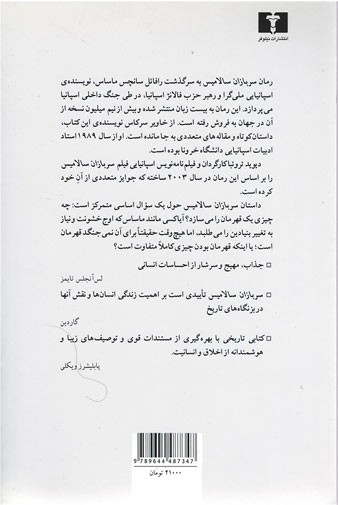 انتشارات نیلوفر
رمان سربازان سالامیس به سرگذشت رافائل سانچس ماساس، نویسنده‌ی
اسپانیایی ملی‌گرا و رهبر حزب فالانژ اسپانیا، در طی جنگ داخلی اسپانیا
می‌پردازد. این رمان به بیست زبان منتشر شده و بیش از نیم میلیون نسخه از
آن در جهان به فروش رفته است. از خابیر سرکاس نویسنده‌ی این کتاب،
داستان کوتاه و مقاله‌های متعددی به جا مانده است. او از سال ۱۹۸۹ استاد
ادبیات اسپانیایی دانشگاه خرونا بوده است.
دیوید تروئبا کارگردان و فیلم‌نامه‌نویس اسپانیایی فیلم سربازان سالامیس
را بر اساس این رمان در سال ۲۰۰۳ ساخته که جوایز متعددی از آن خود
کرده است.
داستان سربازان سالامیس حول یک سؤال اساسی متمرکز است: چه
چیزی یک قهرمان را می‌سازد؟ آیا کسی مانند ماساس که اوج خشونت و نیاز
به تغییر بنیادین را می‌طلبد، اما هیچ وقت حقیقتاً برای آن نمی‌جنگد قهرمان
است؛ یا اینکه قهرمان بودن چیزی کاملاً متفاوت است؟
جذاب، مهیج و سرشار از احساسات انسانی
لس‌آنجلس تایمز
سربازان سالامیس تأییدی است بر اهمیت زندگی انسان‌ها و نقش آنها
در بزنگاه‌های تاریخ
گاردین
کتابی تاریخی با بهره‌گیری از مستندات قوی و توصیف‌های زیبا و
هوشمندانه از اخلاق و انسانیت.
پابلیشرز ویکلی
9 789644 487347
۲۱۰۰۰ تومان